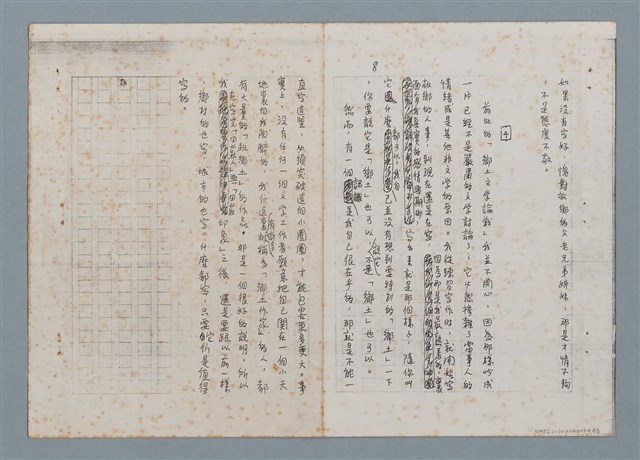 如果沒有寫好，愧對故鄉的父老兄弟姊妹，那是才情不夠
，不是態度不敬。
4
前此的「鄉土文學論戰」我並不關心，因為那樣吵成
一片已經不是嚴肅的文學討論了，它必然摻雜了當事人的
情緒或是其他非文學的原因。我從練習寫作時，就開始寫
故鄉的人事，到現在還是在寫，
寫出來就是那個樣子，隨你叫
它什麼都可以，我自己並沒有想到要特別的「鄉土」一下
，你要說它是「鄉土」也可以，說它不是「鄉土」也可以。
然而，有一個認識是我自己很在乎的，那就是不能一
8
直寫這些，必須突破這個小圈圈，才能包容更多更大。事
實上，沒有任何一個文學工作者願意把自己關在一個小天
地裏的，我們這裏所謂被稱為「鄉土作家」的人，都
有大量的「非鄉土」的作品。那是一個很好的說明。所以
我在寫完「印象」之後，還是要跟以前一樣
，鄉村的也寫，城市的也寫，什麼都寫，只要它們是值得
寫的。